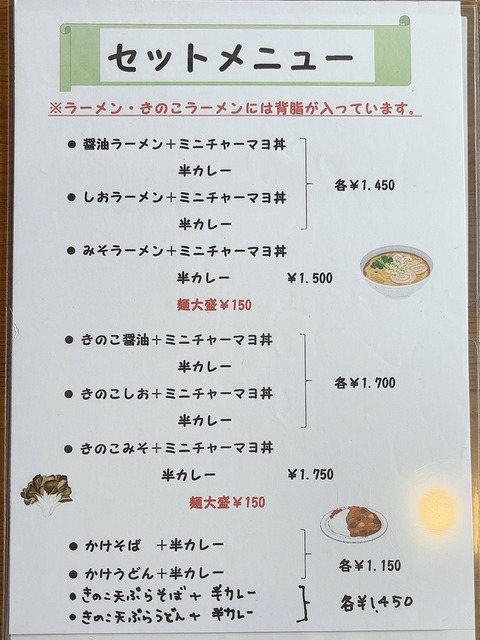 セットメニュー
※ラーメン・きのこラーメンには背脂が入っています。
● 醤油ラーメン＋ミニチャーマヨ丼
半カレー
各￥1.450
● しおラーメン＋ミニチャーマヨ丼
半カレー
● みそラーメン＋ミニチャーマヨ丼
半カレー ￥1.500
麺大盛￥150
● きのこ醤油＋ミニチャーマヨ丼
半カレー
各￥1.700
● きのこしお＋ミニチャーマヨ丼
半カレー
● きのこみそ＋ミニチャーマヨ丼
半カレー ￥1.750
麺大盛￥150
● かけそば ＋半カレー
各￥1.150
● かけうどん＋半カレー
● きのこ天ぷらそば＋ 半カレー
各￥1.450
● きのこ天ぷらうどん＋ 半カレー